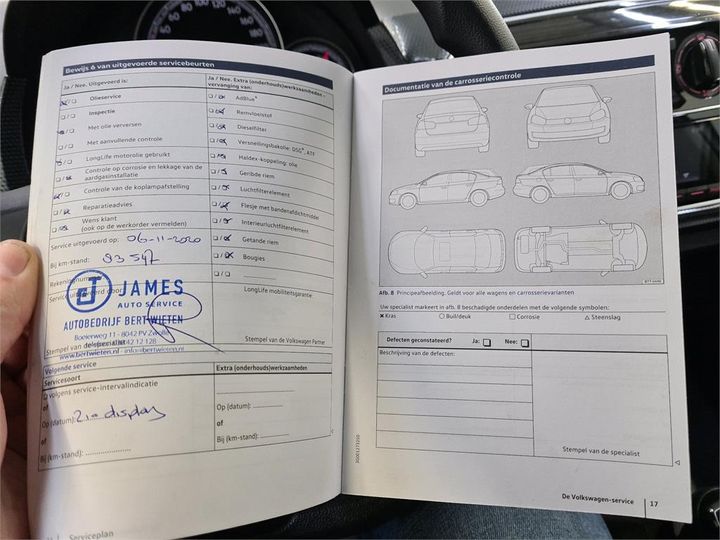 Bewijs 6 van uitgevoerde servicebeurten
Ja / Nee. Uitgevoerd is:
Olieservice
Inspectie
Met olie verversen
Met aanvullende controle
LongLife motorolie gebruikt
Controle op corrosie en lekkage van de aardgasinstallatie
Controle van de koplampafstelling
Reparatieadvies
Wens klant
(ook op de werkorder vermelden)
Service uitgevoerd op: 06-11-2020
Bij km-stand: 93547
Service uitgevoerd door
JAMES
AUTO SERVICE
AUTOBEDRIJF BERT WIETEN
Stempel van de specialist
www.bertwieten.nl - info@bertwieten.nl
Ja / Nee. Extra (onderhouds)werkzaamheden – vervanging van:
AdBlue®
Remvloeistof
Dieselfilter
Versnellingsbakolie: DSG®, ATF
Haldex-koppeling: olie
Geribde riem
Luchtfilterelement
Flesje met bandenafdichtmiddel
Interieurluchtfilterelement
Getande riem
Bougies
LongLife mobiliteitsgarantie
Stempel van de Volkswagen Partner
Volgende service
Servicesoort
volgens service-intervalindicatie
of
Op (datum): Zie display
of
Bij (km-stand):
Extra (onderhouds)werkzaamheden
Op (datum):
of
Bij (km-stand):
Serviceplan
Documentatie van de carrosseriecontrole
Afb. 8 Principeafbeelding. Geldt voor alle wagens en carrosserievarianten
Uw specialist markeert in afb. 8 beschadigde onderdelen met de volgende symbolen:
× Kras ○ Buil/deuk □ Corrosie △ Steenslag
Defecten geconstateerd? Ja: Nee:
Beschrijving van de defecten:
Stempel van de specialist
De Volkswagen-service 17